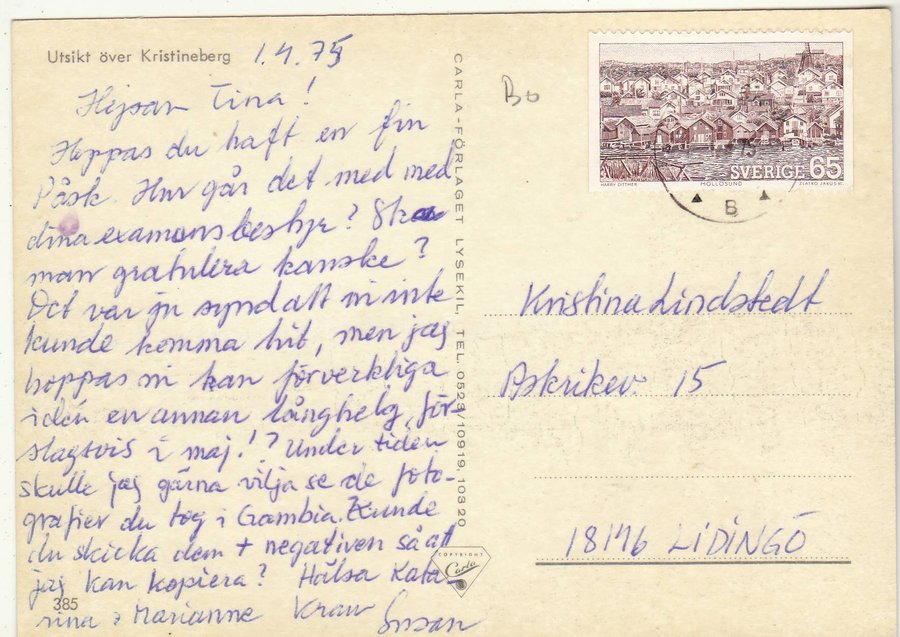 Utsikt över Kristineberg
1.4.75
Hejsan Tina!
Hoppas du haft en fin
Påsk. Hur går det med med
dina examensbestyr? Ska
man gratulera kanske?
Det var ju synd att ni inte
kunde komma hit, men jag
hoppas ni kan förverkliga
idén en annan långhelg, för-
slagsvis i maj!? Under tiden
skulle jag gärna vilja se de foto-
grafier du tog i Gambia. Kunde
du skicka dem + negativen så att
jag kan kopiera? Hälsa Kata-
rina & Marianne Kram
Susan
385
CARLA-FÖRLAGET LYSEKIL, TEL. 0523/10919, 10320
COPYRIGHT
Carla
Bo
SVERIGE 65
HARRY DITTMER MOLLÖSUND ZLATKO JAKUS SC.
75
B
Kristina Lindstedt
Askrikev. 15
18146 LIDINGÖ